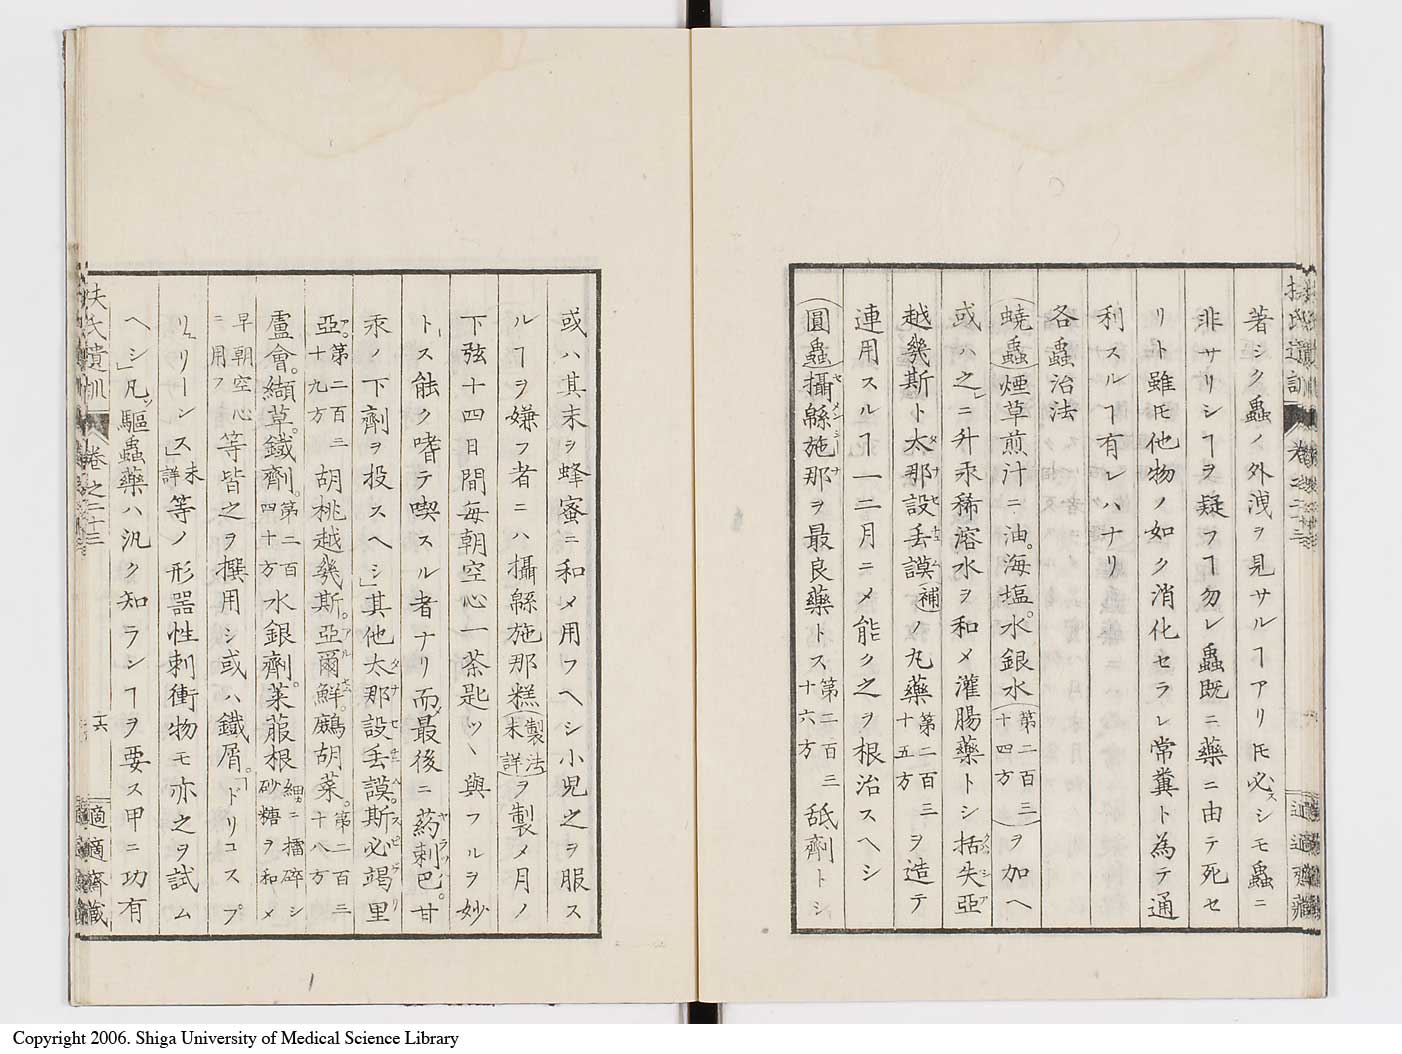 著シク蟲ノ外洩ヲ見サルヿアリ𪜈必スシモ蟲ニ
非サリシヿヲ疑フヿ勿レ蟲既ニ藥ニ由テ死セ
リト雖𪜈他物ノ如ク消化セラレ常糞ト為テ通
利スルヿ有レハナリ
各蟲治法
(蟯蟲)煙草煎汁ニ油。海塩。水銀水(第二百三十四方)ヲ加ヘ
或ハ之レニ升汞稀溶水ヲ和メ灌腸藥トシ括失亞
越幾斯ト太那設丢謨(補)ノ丸藥第二百三十五方ヲ造テ
連用スルヿ一二月ニメ能ク之ヲ根治スヘシ
(圓蟲)攝緜施那ヲ最良藥トス第二百三十六方舐劑トシ
或ハ其末ヲ蜂蜜ニ和メ用フヘシ小児之ヲ服ス
ルヿヲ嫌フ者ニハ攝緜施那糕(製法未詳)ヲ製メ月ノ
下弦十四日間每朝空心一茶匙ツヽ與フルヲ妙
トス能ク嗜テ喫スル者ナリ而最後ニ葯剌巴。甘
汞ノ下劑ヲ投スヘシ」其他太那設丢謨。斯必竭里
亞。第二百三十九方胡桃越幾斯。亞爾鮮。鷓胡菜。第二百三十八方
盧會。纈草。鐵劑。第二百四十方水銀劑。萊菔根細ニ擂碎シ砂糖ヲ和メ
早朝空心ニ用フ等皆之ヲ撰用シ或ハ鐵屑。「ドリコスプ
リュリーンス」未詳等ノ形器性刺衝物モ亦之ヲ試ム
ヘシ」凡ソ驅蟲藥ハ汎ク知ランヿヲ要ス甲ニ功有
扶氏遺訓
卷之二十三
十六
適適齋藏
Copyright 2006. Shiga University of Medical Science Library